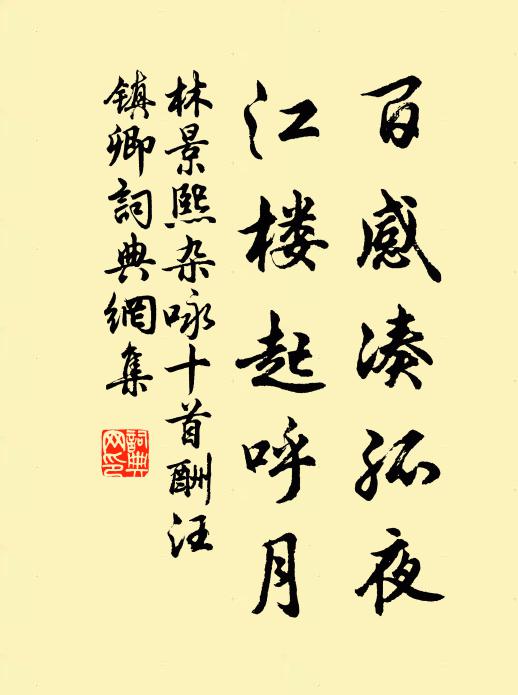 百感凑孤夜
江楼起呼月
林景熙杂咏十首酬汪
镇卿詞典網集
詞典网印